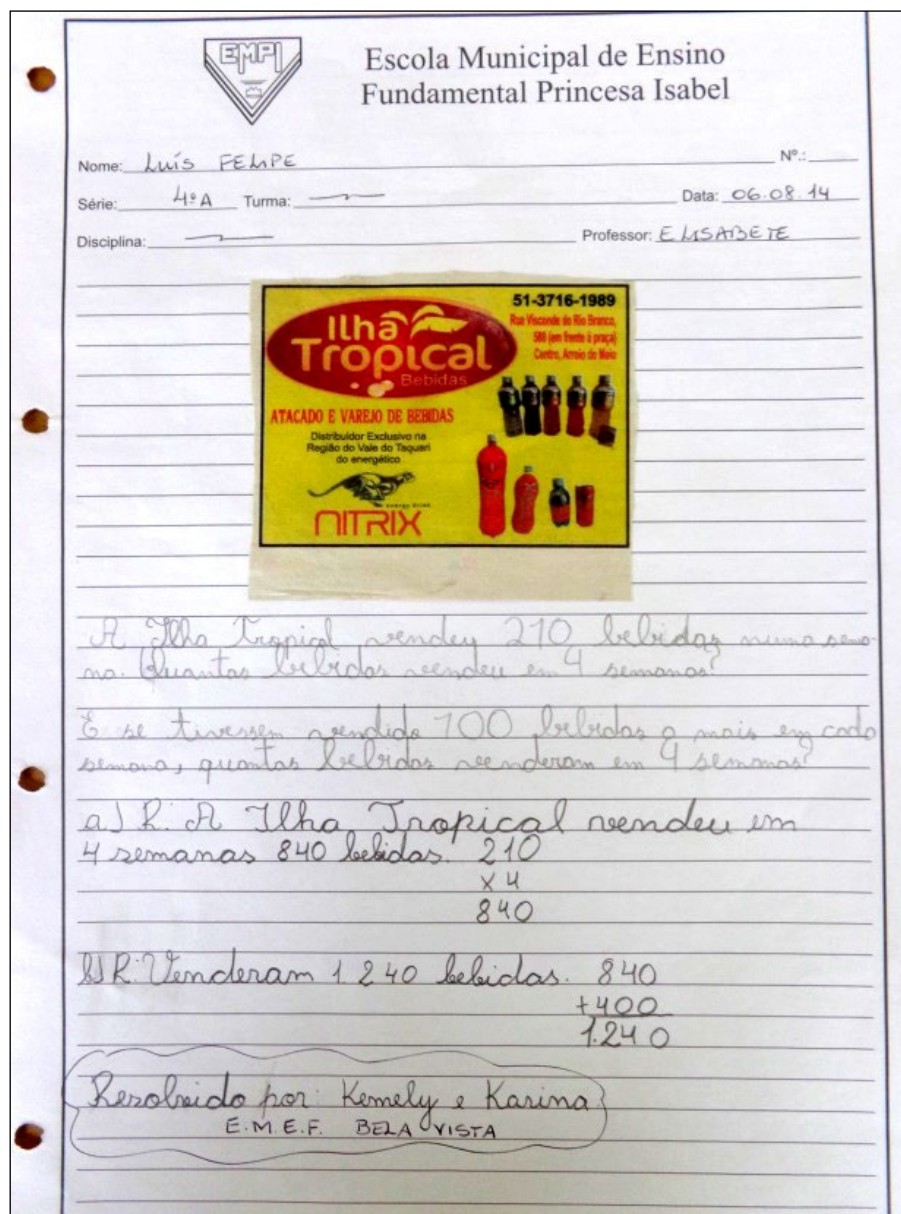 EMPI
Escola Municipal de Ensino
Fundamental Princesa Isabel
Nome: Luís FELIPE Nº.:
Série: 4ºA Turma: Data: 06.08.14
Disciplina: Professor: ELISABETE
51-3716-1989
Rua Visconde do Rio Branco,
588 (em frente à praça)
Centro, Arroio do Meio
Ilha
Tropical
Bebidas
ATACADO E VAREJO DE BEBIDAS
Distribuidor Exclusivo na
Região do Vale do Taquari
do energético
energy drink
NITRIX
A Ilha Tropical vendeu 210 bebidas numa sema-
na. Quantas bebidas vendeu em 4 semanas?
E se tivessem vendido 100 bebidas a mais em cada
semana, quantas bebidas venderam em 4 semanas?
a) R: A Ilha Tropical vendeu em
4 semanas 840 bebidas. 210
x 4
840
b) R: Venderam 1.240 bebidas. 840
+400
1.240
Resolvido por: Kemely e Karina
E.M.E.F. BELA VISTA